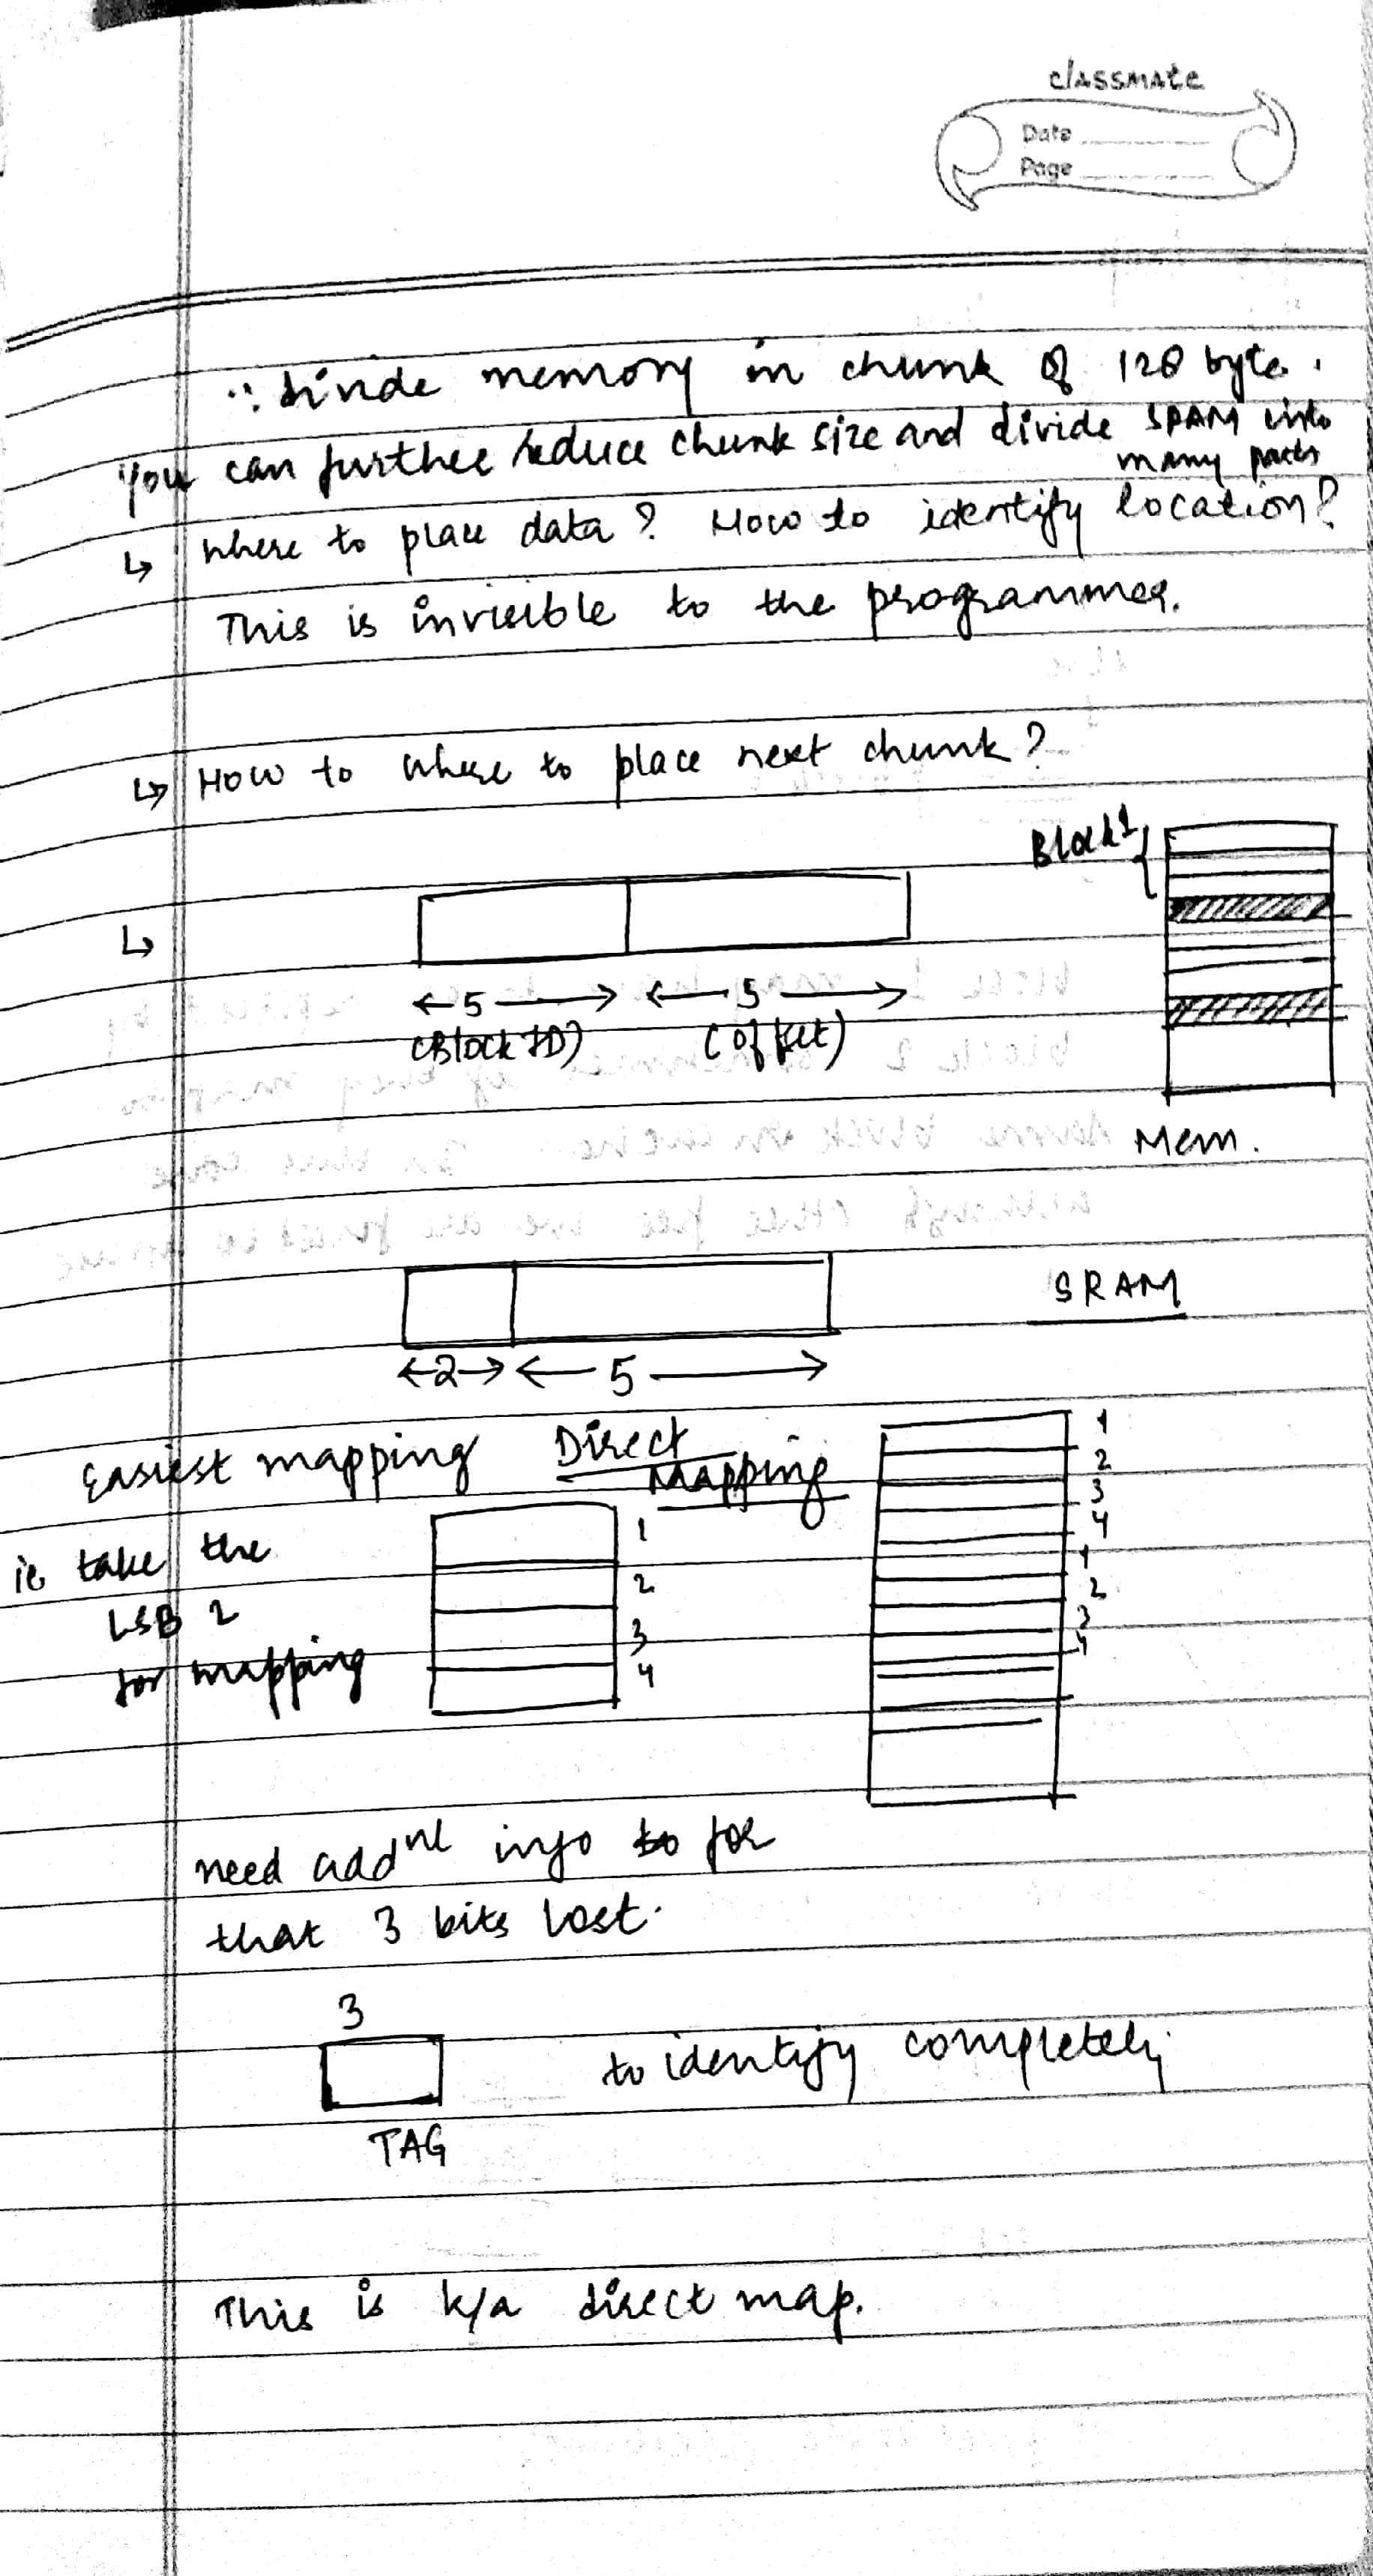 classmate
Date
Page
∴ divide memory in chunk of 128 byte.
You can further reduce chunk size and divide SRAM into
many parts
↳ where to place data? How to identify location?
This is invisible to the programmer.
↳ How to where to place next chunk?
Block 1
↳
← 5 → ← 5 →
(Block ID) (offset)
Mem.
SRAM
←2→ ← 5 →
Easiest mapping Direct
Mapping
ie take the
LSB 2
for mapping
1
2
3
4
1
2
3
4
1
2
3
4
need addnl info to for
that 3 bits lost.
3
to identify completely
TAG
This is k/a direct map.